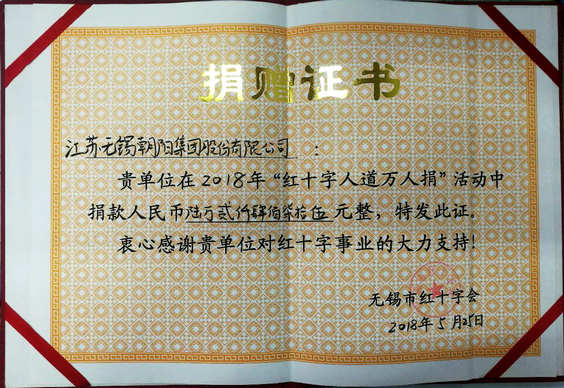 捐赠证书
江苏无锡朝阳集团股份有限公司：
贵单位在2018年“红十字人道万人捐”活动中
捐款人民币陆万贰仟肆佰柒拾伍元整，特发此证。
衷心感谢贵单位对红十字事业的大力支持！
无锡市红十字会
2018年5月25日